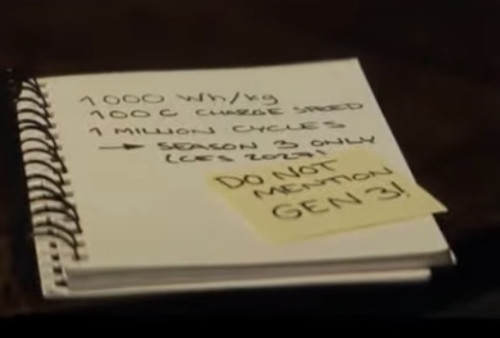 1000 Wh/kg
100C CHARGE SPEED
1 MILLION CYCLES
→ SEASON 3 ONLY
(CES 2027)
DO NOT
MENTION
GEN 3!